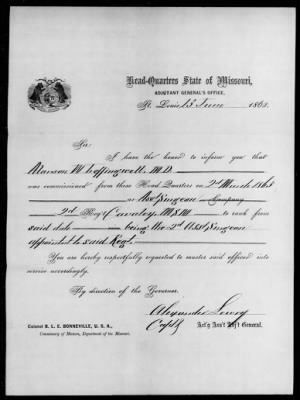 Head-Quarters State of Missouri,
ADJUTANT GENERAL'S OFFICE,
St. Louis 13 June 1863.
Sir:
I have the honor to inform you that
Alanson M Leffingwell M.D.
was commissioned from these Head Quarters on 2d March 1863
as Ass't Surgeon Company
2d Reg't Cavalry M.S.M. to rank from
said date being the 2d Ass't Surgeon
appointed to said Regt.
You are hereby respectfully requested to muster said officer into
service accordingly.
By direction of the Governor.
Alexander Lowry
Capt &
Act'g Ass't Adj't General.
Colonel B. L. E. BONNEVILLE, U. S. A.,
Commissary of Musters, Department of the Missouri.